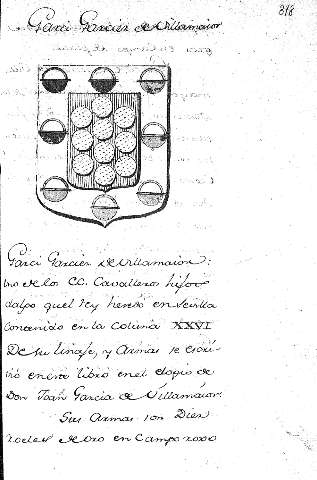 318
Garci Garciez de Villamaior
Garci Garciez de Villamaior:
uno de los CC. Cavalleros hijos
dalgo quel rey heredó en Sevilla
contenido en la coluna XXVI
De su linaje, y Armas se escri-
vió en este libro en el elogio de
Don Joan García de Villamaior.
Sus Armas son Diez
roeles de oro en Campo roxo